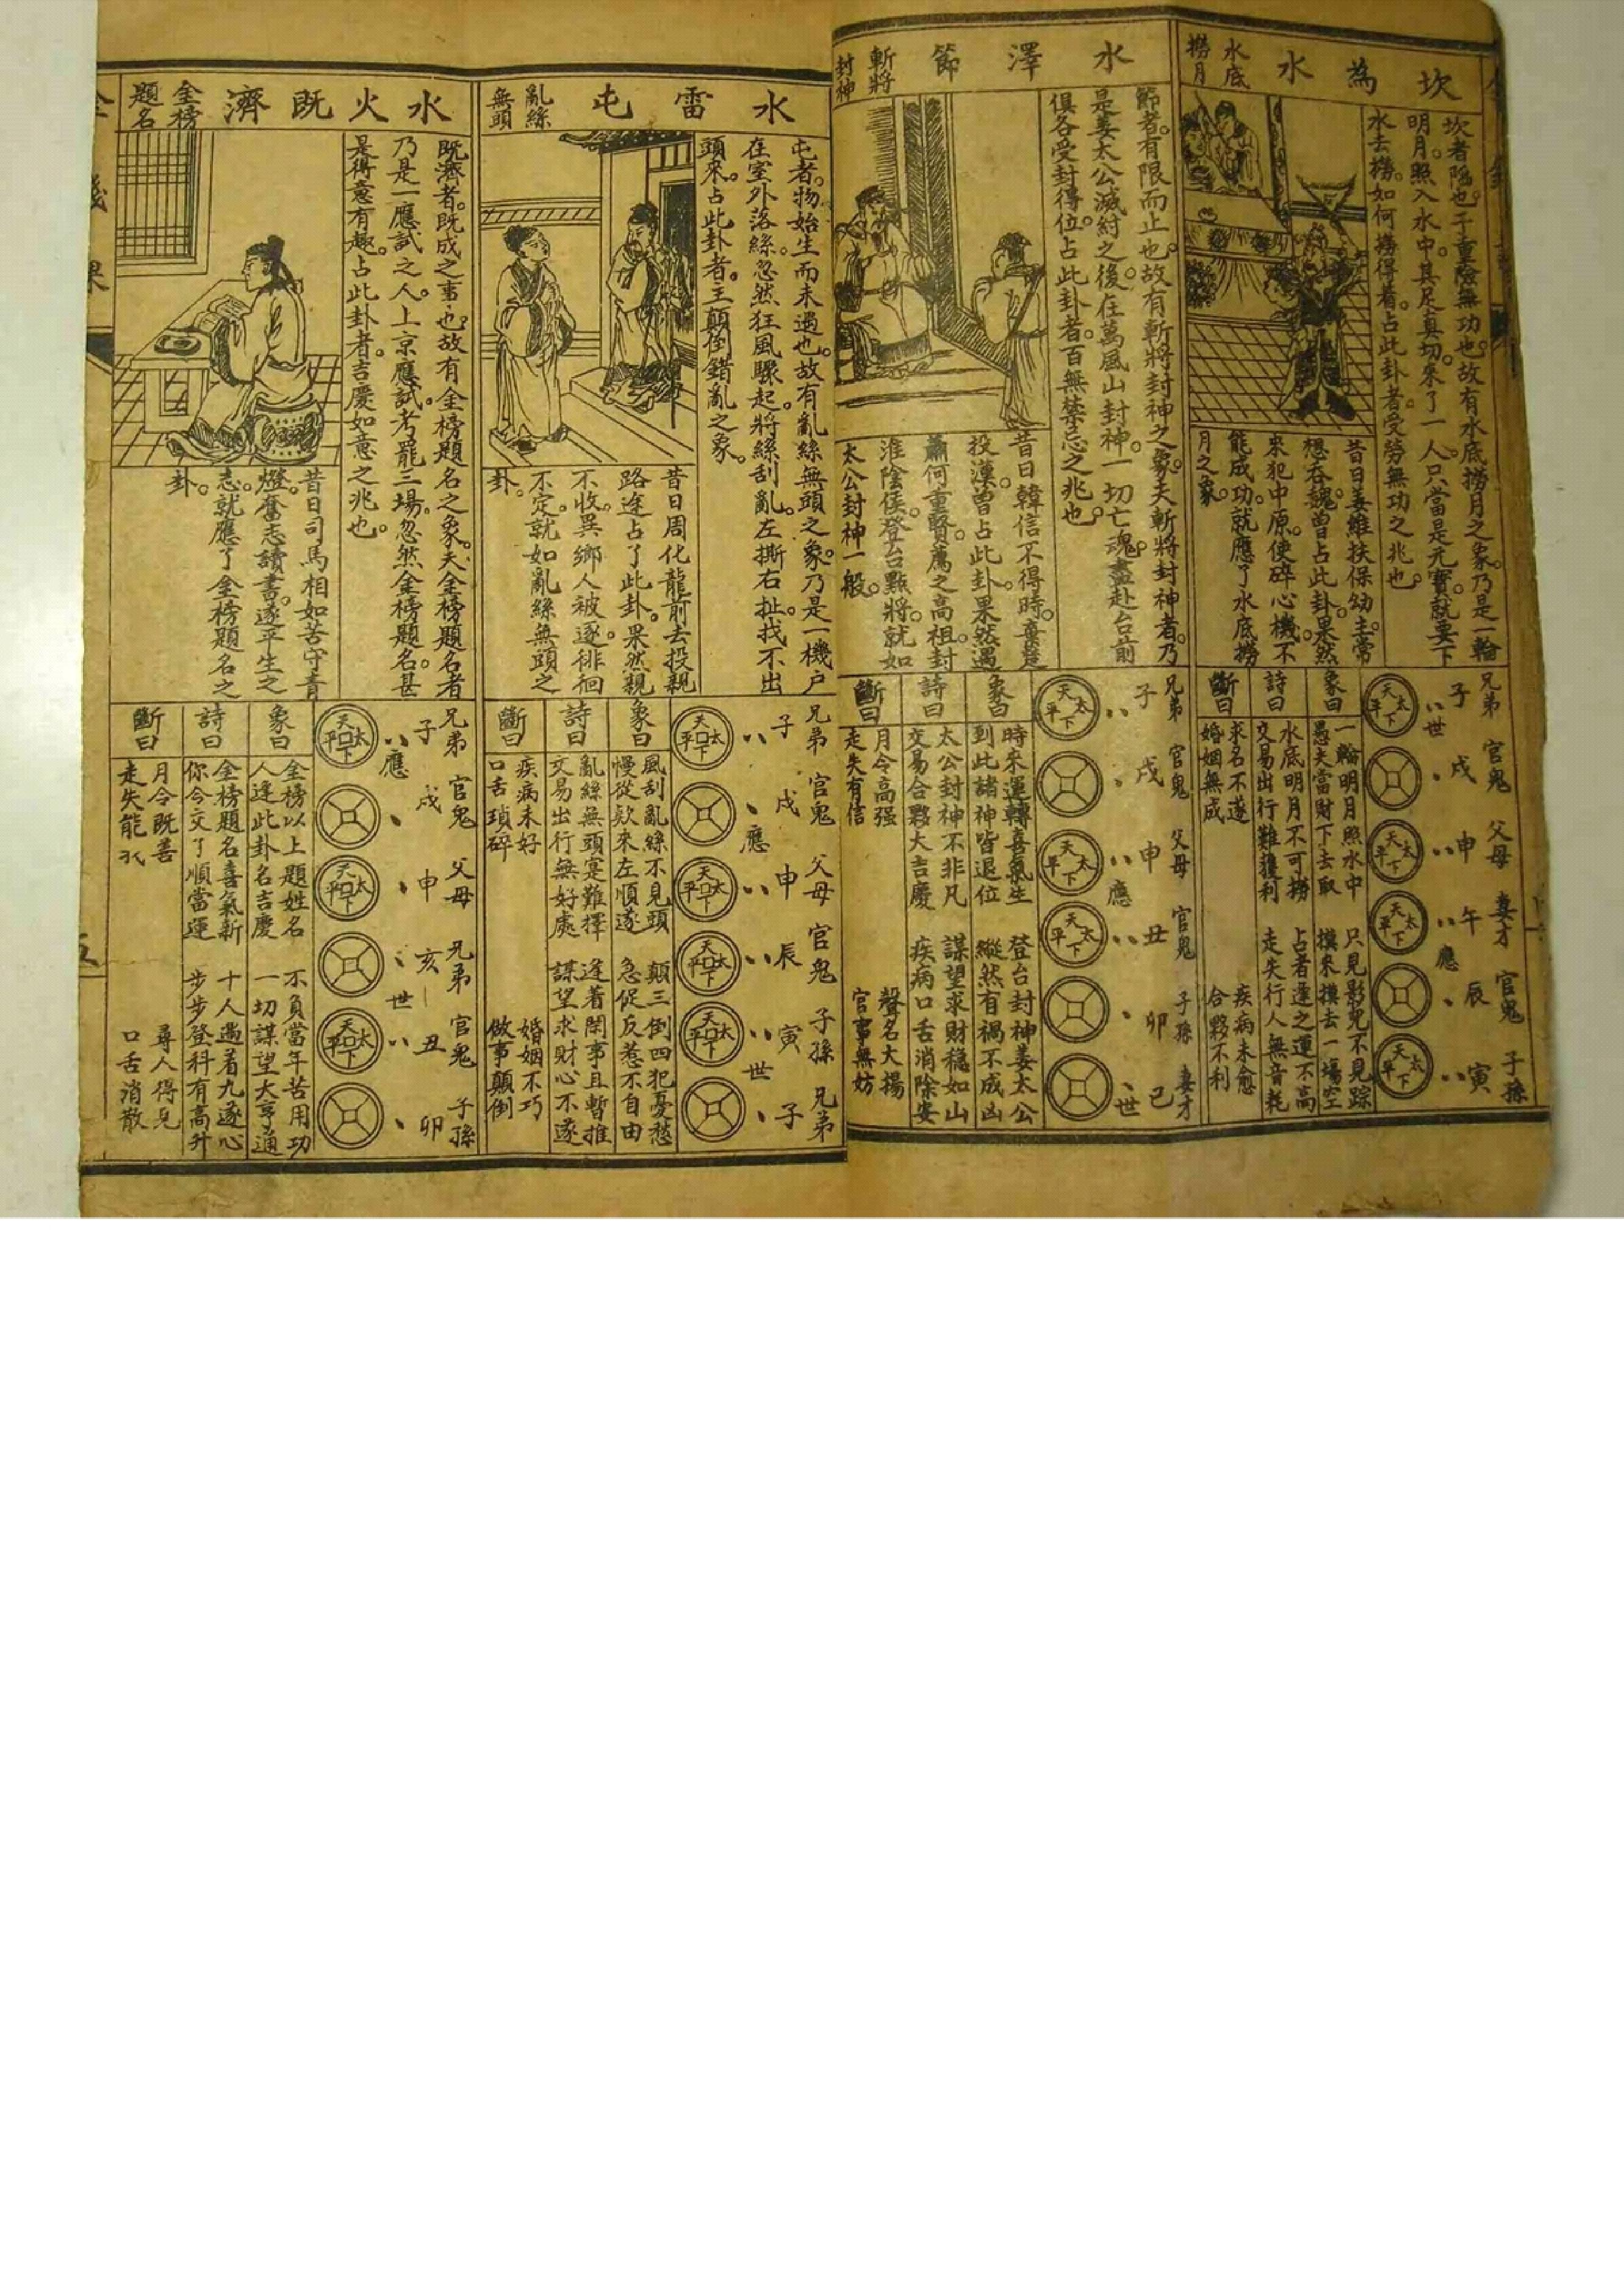 坎為水
水底
撈月
坎者陷也于重險無功也故有水底撈月之象。乃是一輪
明月。照入水中。其足真切。來了一人。只當是元寶。就要下
水去撈。如何撈得着。占此卦者受勞無功之兆也。
昔日姜維扶保幼主常
想吞魏。曾占此卦。果然
來犯中原。使碎心機。不
能成功。就應了水底撈
月之象。
兄弟 官鬼 父母 妻才 官鬼 子孫
子 戌 申 午 辰 寅
世 應
太平天下
太平天下
太平天下
太平天下
象曰
一輪明月照水中 只見影兒不見踪
愚夫當財下去取 摸來摸去一場空
詩曰
水底明月不可撈 占者逢之運不高
交易出行難獲利 走失行人無音耗
斷曰
求名不遂 疾病未愈
婚姻無成 合夥不利
水澤節
斬將
封神
節者。有限而止也。故有斬將封神之象。夫斬將封神者。乃
是姜太公滅紂之後。在萬風山封神。一切亡魂。盡赴台前
俱各受封得位。占此卦者。百無禁忌之兆也。
昔日韓信不得時。棄楚
投漢。曾占此卦。果然遇
蕭何重賢。薦之高祖。封
淮陰侯。登台點將。就如
太公封神一般。
兄弟 官鬼 父母 官鬼 子孫 妻才
子 戌 申 丑 卯 巳
應 世
太平天下
太平天下
太平天下
象曰
時來運轉喜氣生 登台封神姜太公
到此諸神皆退位 縱然有禍不成凶
詩曰
太公封神不非凡 謀望求財穩如山
交易合夥大吉慶 疾病口舌消除安
斷曰
月令高强 聲名大揚
走失有信 官事無妨
水雷屯
亂絲
無頭
屯者。物始生而未遇也。故有亂絲無頭之象。乃是一機户
在室外落絲。忽然狂風驟起。將絲刮亂。左撕右扯。找不出
頭來。占此卦者。主顛倒錯亂之象。
昔日周化龍前去投親
路途占了此卦。果然親
不收。異鄉人被逐。徘徊
不定。就如亂絲無頭之
卦。
兄弟 官鬼 父母 官鬼 子孫 兄弟
子 戌 申 辰 寅 子
應 世
太平天下
太平天下
太平天下
太平天下
象曰
風刮亂絲不見頭 顛三倒四犯憂愁
慢從欵來左順遂 急促反惹不自由
詩曰
亂絲無頭寔難擇 逢着閑事且暫推
交易出行無好處 謀望求財心不遂
斷曰
疾病未好 婚姻不巧
口舌瑣碎 做事顛倒
水火既濟
金榜
題名
既濟者。既成之事也。故有金榜題名之象。夫金榜題名者
乃是一應試之人。上京應試。考罷三場。忽然金榜題名。甚
是得意有趣。占此卦者。吉慶如意之兆也。
昔日司馬相如苦守青
燈。奮志讀書。遂平生之
志。就應了金榜題名之
卦。
兄弟 官鬼 父母 兄弟 官鬼 子孫
子 戌 申 亥 丑 卯
應 世
太平天下
太平天下
太平天下
象曰
金榜以上題姓名 不負當年苦用功
人逢此卦名吉慶 一切謀望大亨通
詩曰
金榜題名喜氣新 十人遇着九遂心
你今交了順當運 步步登科有高升
斷曰
月令既善 尋人得見
走失能 口舌消散